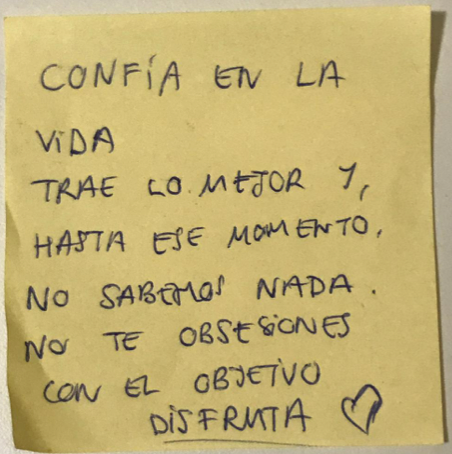 CONFÍA EN LA
VIDA
TRAE LO MEJOR Y,
HASTA ESE MOMENTO,
NO SABEMOS NADA.
NO TE OBSESIONES
CON EL OBJETIVO
DISFRUTA ♡